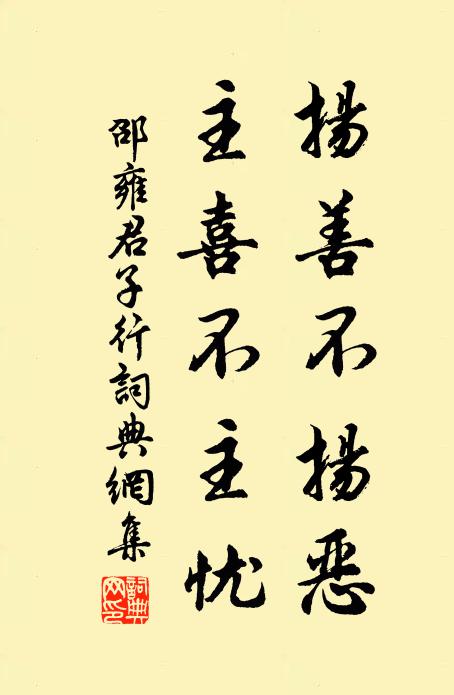 揚善不揚惡
主喜不主忧
邵雍君子行詞典網集
詞典
网印